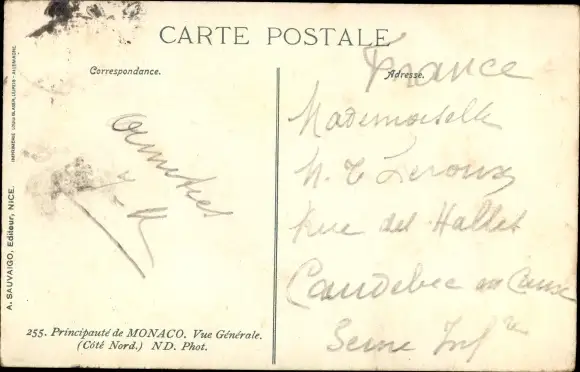 CARTE POSTALE
Correspondance.
Adresse.
France
Mademoiselle
M. T. Leroux
Rue des Halles
Caudebec en Caux
Seine Infre
Amitiés
A. SAUVAIGO, Editeur, NICE.
255. Principauté de MONACO. Vue Générale.
(Côté Nord.) ND. Phot.